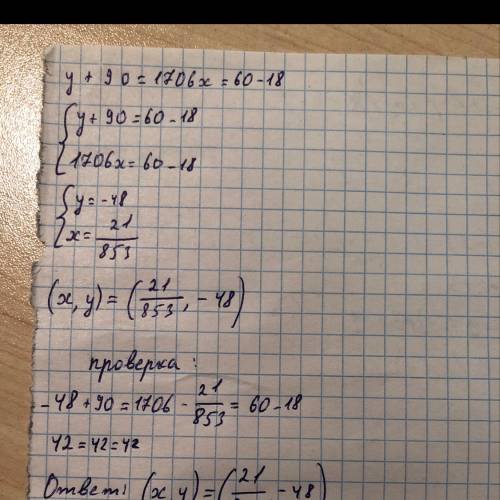 y + 90 = 1706x = 60 - 18
{ y + 90 = 60 - 18
1706x = 60 - 18
{ y = -48
x = 21/853
(x, y) = (21/853, - 48)
проверка :
- 48 + 90 = 1706 - 21/853 = 60 - 18
42 = 42 = 42
Ответ: (x, y) = (21/ - 48)